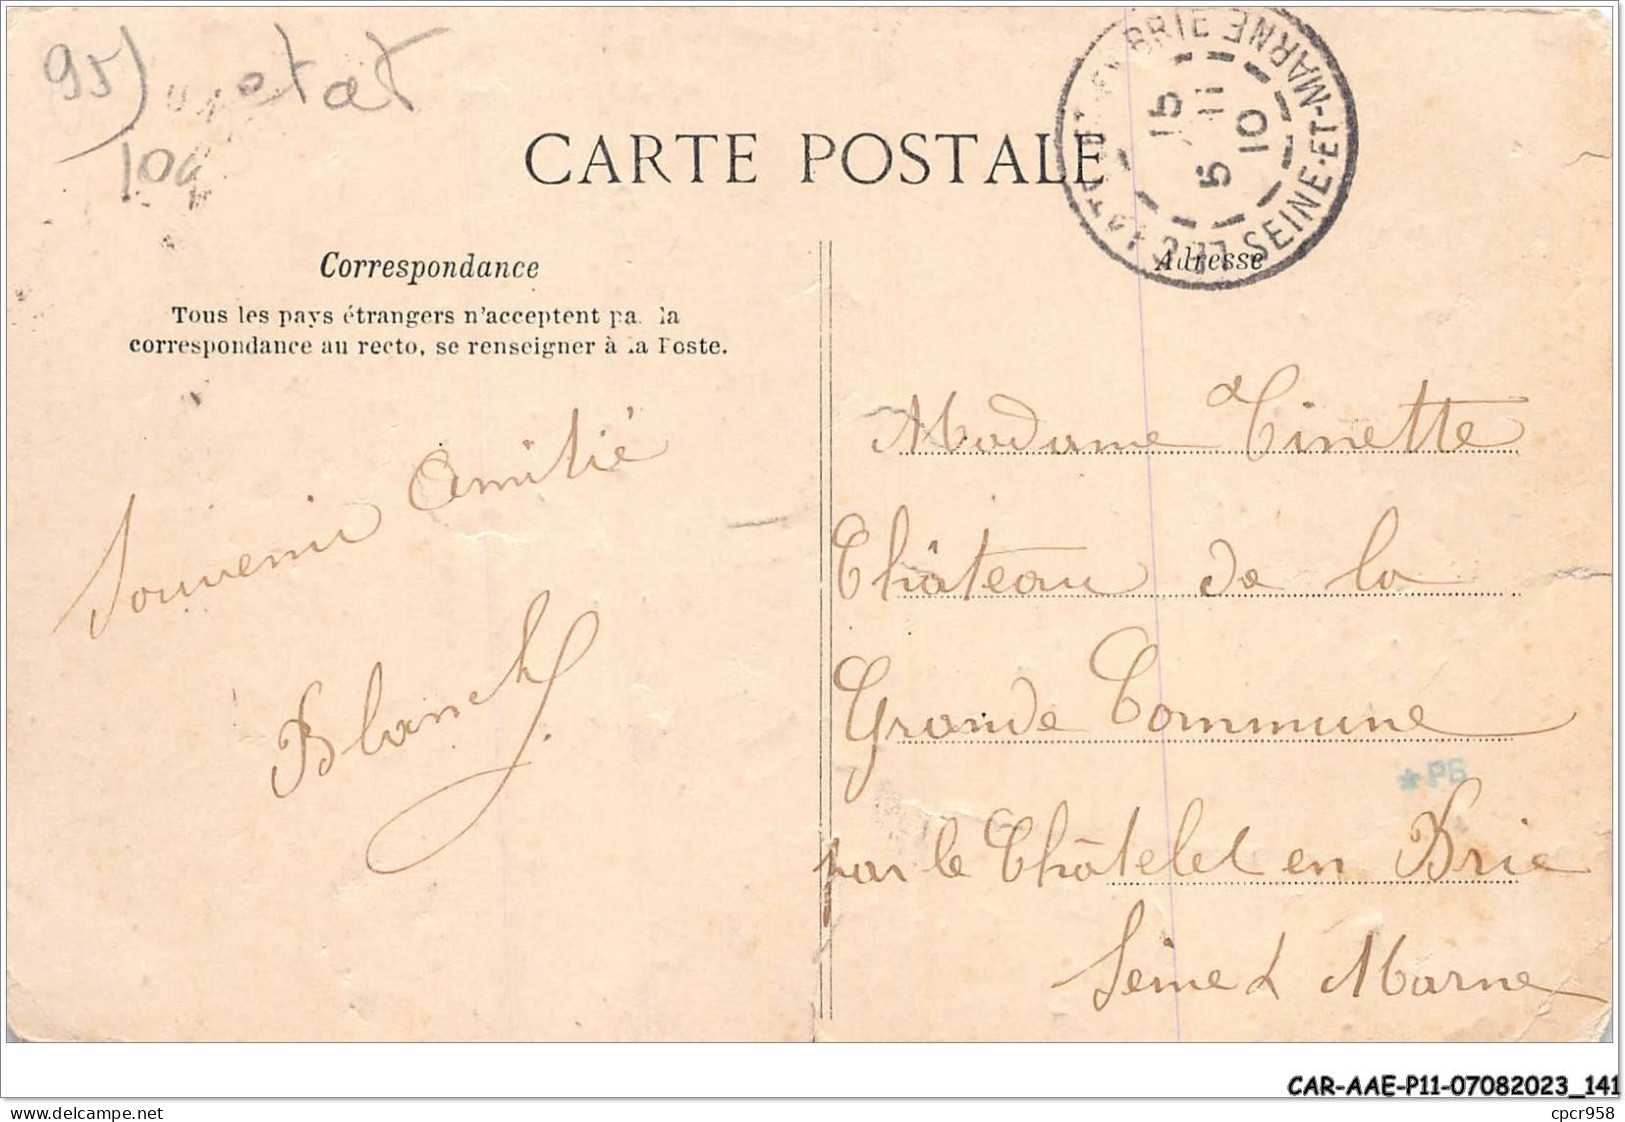 95)
etat
CARTE POSTALE
BRIE
SEINE-ET-MARNE
15
5 11
10
Correspondance
Adresse
Tous les pays étrangers n'acceptent pa la
correspondance au recto, se renseigner à la Poste.
Souvenir Amitié
Blanch
Madame Tinette
Château de la
Grande Commune
*PB
par le Châtelet en Brie
Seine & Marne
CAR-AAE-P11-07082023_141
www.delcampe.net
cpcr958